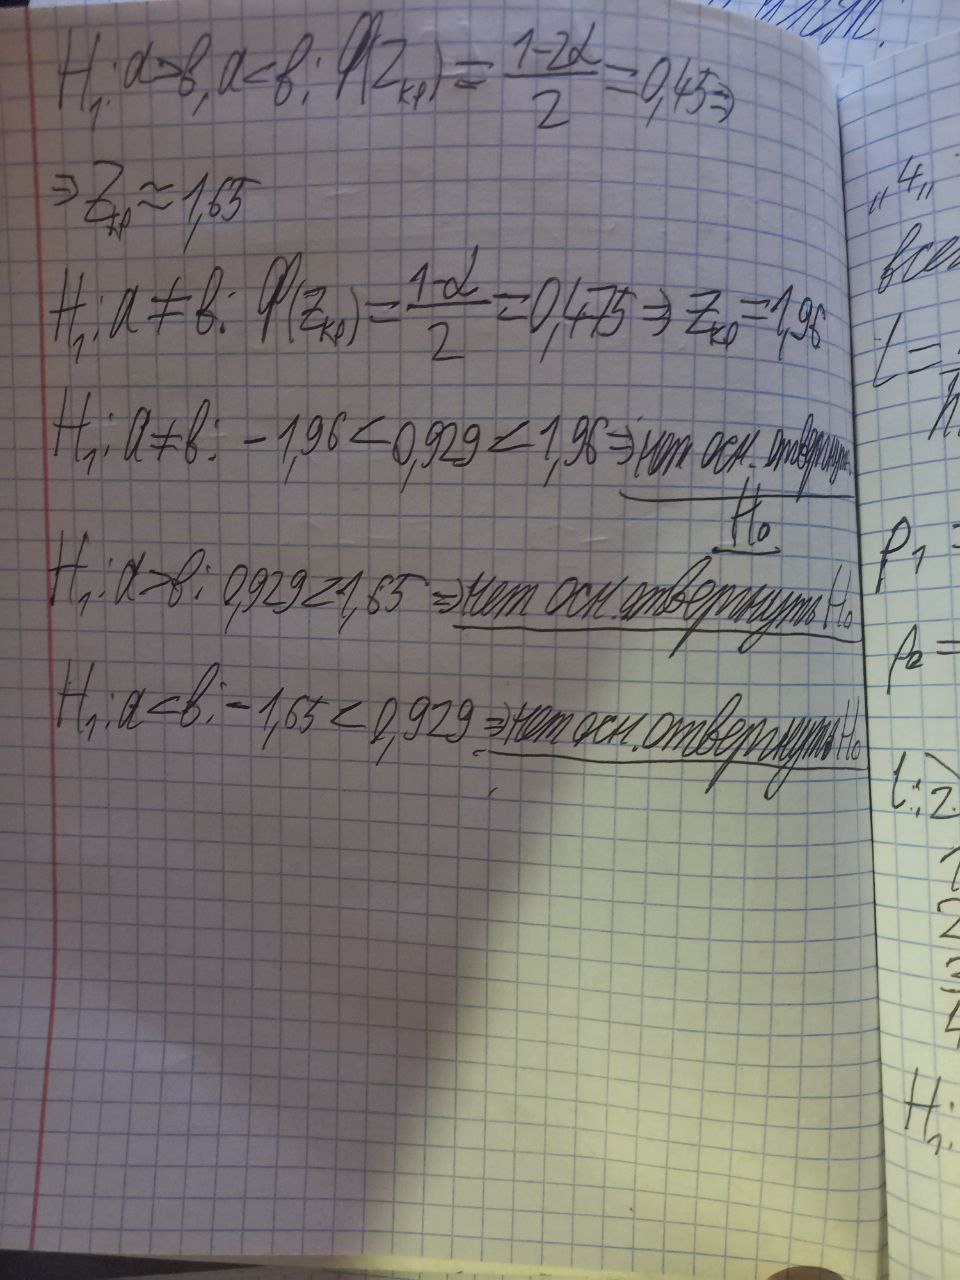 H₁: a>b, a<b: Φ(Zкр) = (1-2α)/2 = 0,45 ⇒
⇒ Zкр ≈ 1,65
H₁: a ≠ b: Φ(Zкр) = (1-α)/2 = 0,475 ⇒ Zкр = 1,96
H₁: a ≠ b: -1,96 < 0,929 < 1,96 ⇒ нет осн. отвергнуть
H₀
H₁: a > b: 0,929 < 1,65 ⇒ нет осн. отвергнуть H₀
H₁: a < b: -1,65 < 0,929 ⇒ нет осн. отвергнуть H₀
"4"
L =
P₁ =
P₂ =
1
2
3
4
H₁: